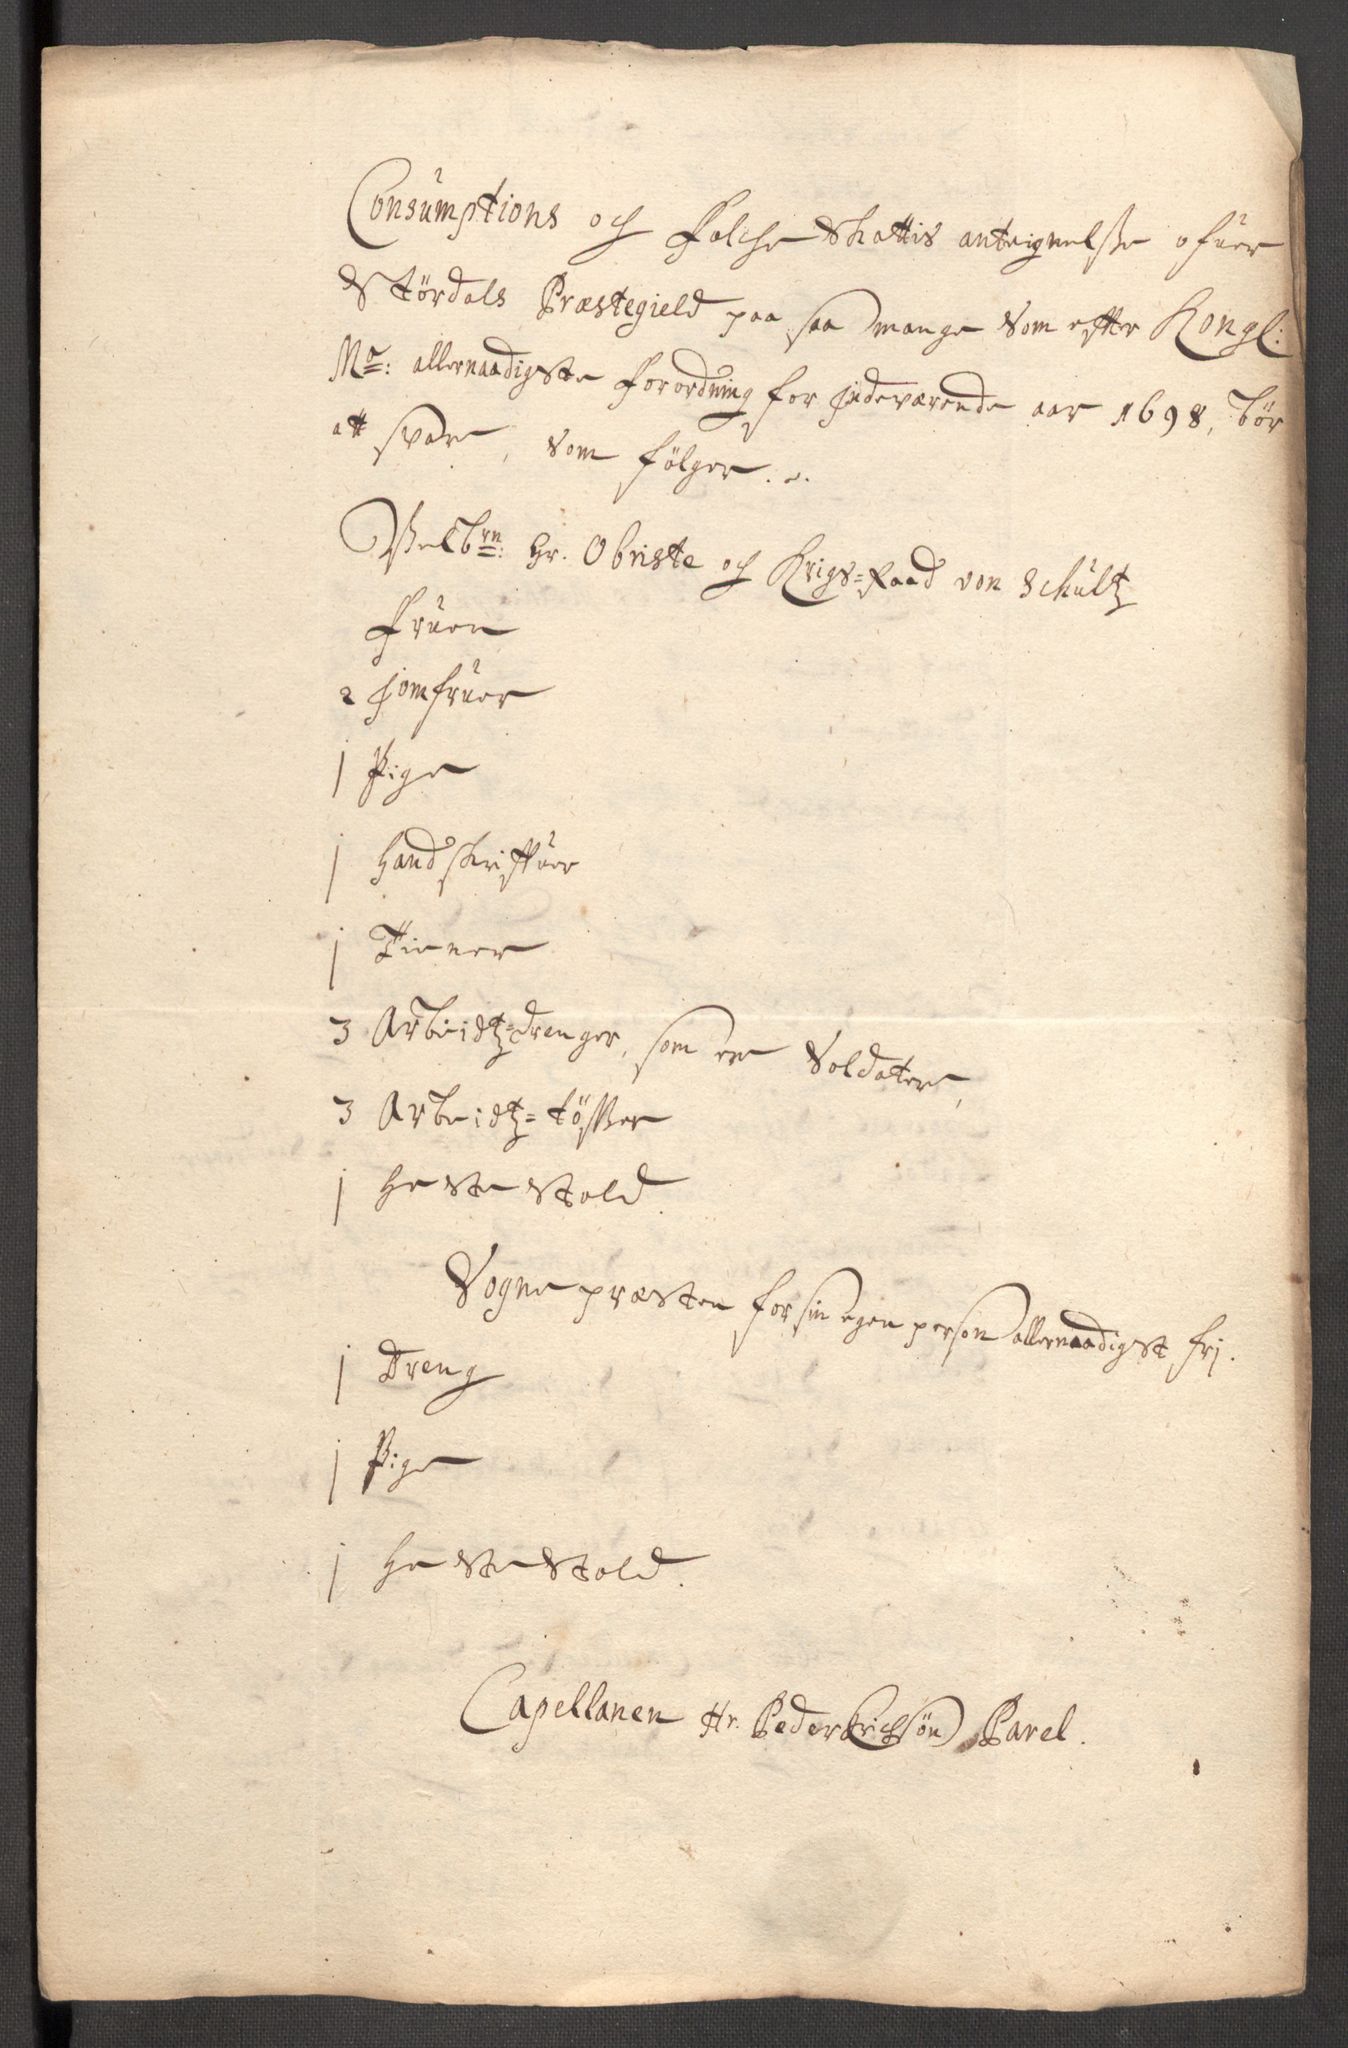 Consumptions och Folche Skattis anteignelsse ofuer
Stördals Præstegield paa saa mange som efter Kongl:
Ma: allernaadigste forordning for Jndeværende aar 1698, bör
att svare, som fölger.
Velbrn: Hr. Obriste och Krigs=Raad von Schultz
Fruen
2 Jomfruer
1 Pige
1 Handskriffuer
1 Tiener
3 Arbeidtz=drenger, som er Soldater,
3 Arbeidtz=tösser
1 Heste Stold.
Sogne præsten for sin egen person allernaadigst frj.
1 Dreng
1 Pige
1 Heste Stold.
Capellanen Hr. Peder Erichsön Parel.